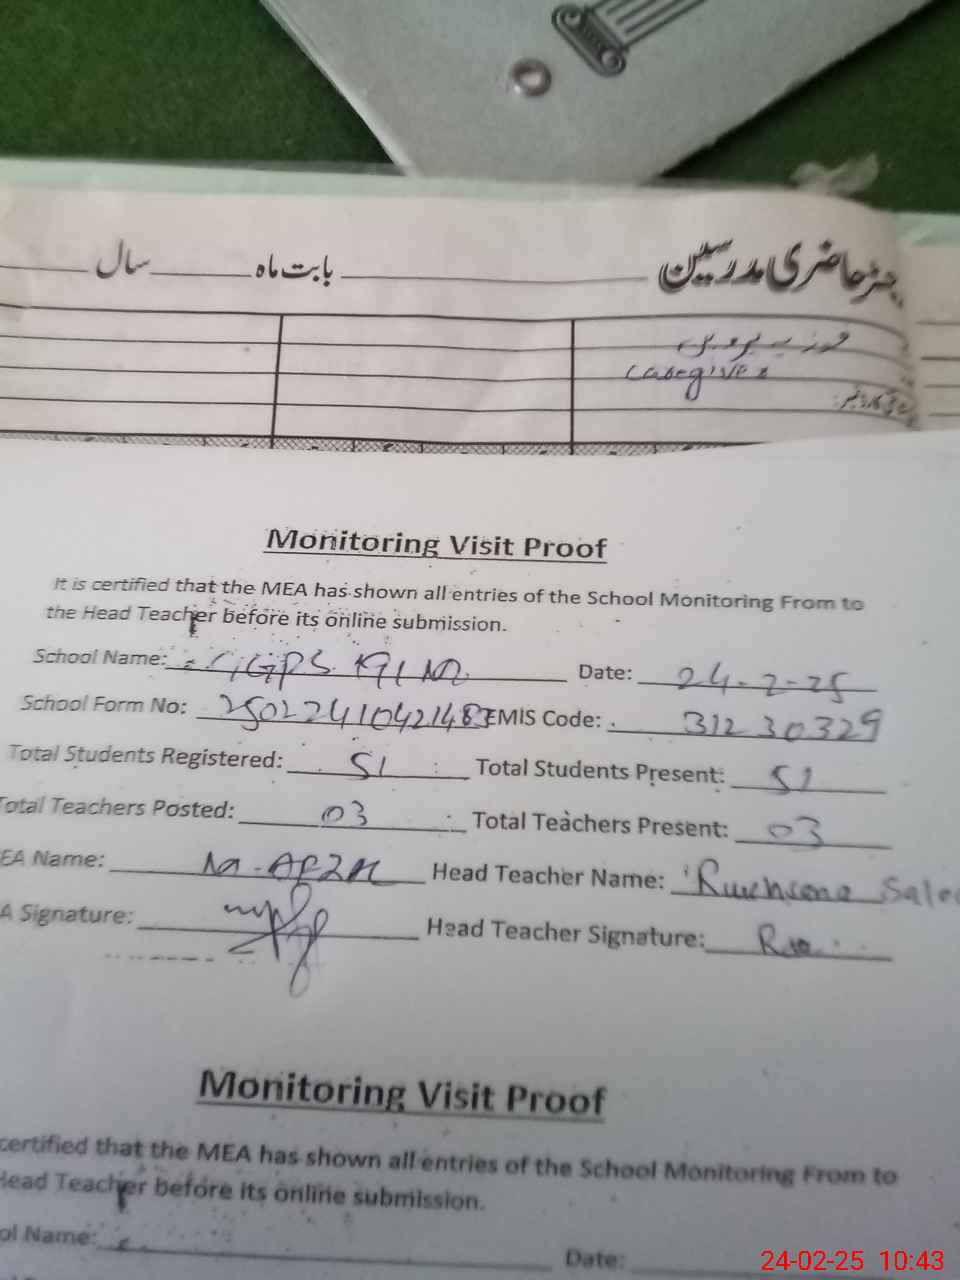 رجسٹر حاضری مدرسین ــــــ بابت ماہ ــــــ سال ــــــ
caregiver
Monitoring Visit Proof
It is certified that the MEA has shown all entries of the School Monitoring From to
the Head Teacher before its online submission.
School Name: GGPS 191 Date: 24-2-25
School Form No: EMIS Code: 31230329
Total Students Registered: 51 Total Students Present: 51
Total Teachers Posted: 03 Total Teachers Present: 03
EA Name: M-AFZAL Head Teacher Name:
A Signature: Head Teacher Signature:
Monitoring Visit Proof
certified that the MEA has shown all entries of the School Monitoring From to
Head Teacher before its online submission.
ol Name: Date:
24-02-25 10:43